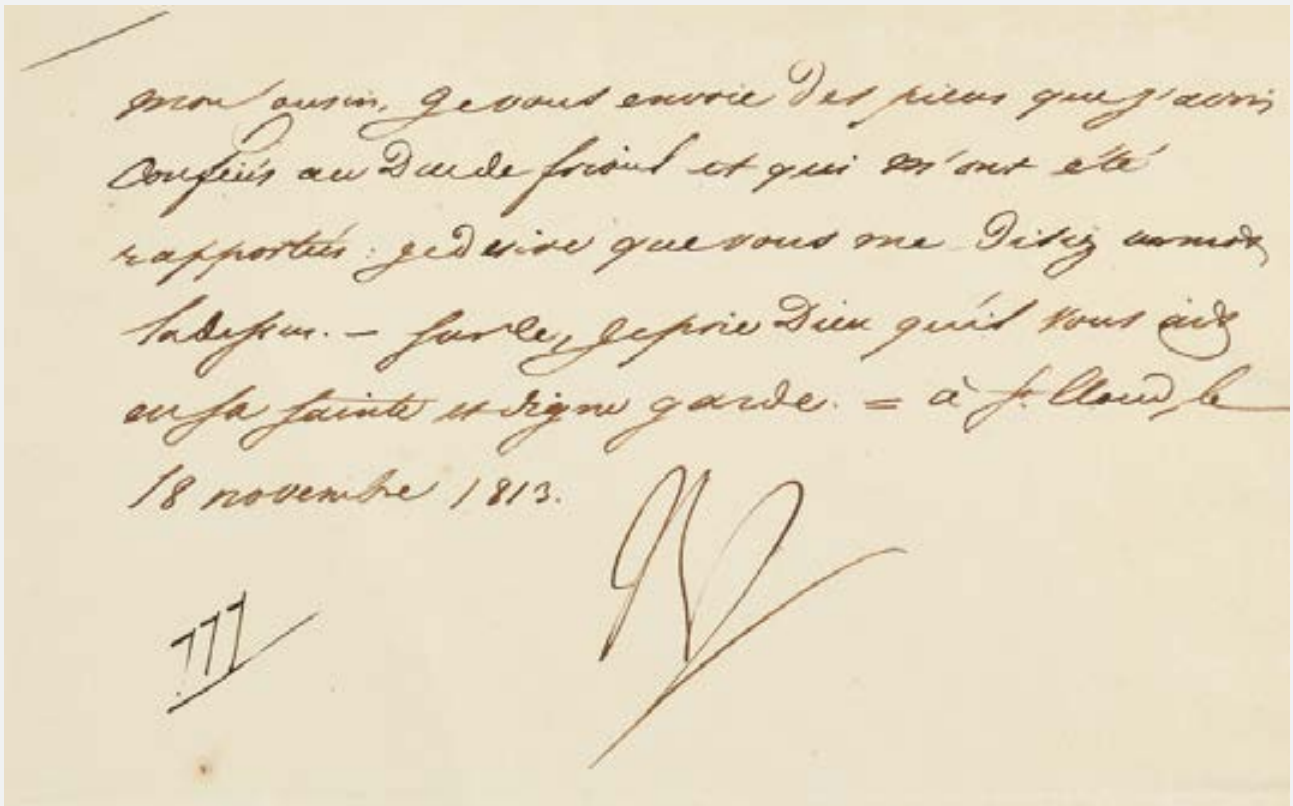 mon cousin, je vous envoie des pièces que j'avais
confiées au Duc de frioul et qui m'ont été
rapportées. je desire que vous me disiez un mot
la dessus. — sur ce, je prie Dieu qu'il vous ait
en sa sainte et digne garde. = à St. Cloud, le
18 novembre 1813.
777
N